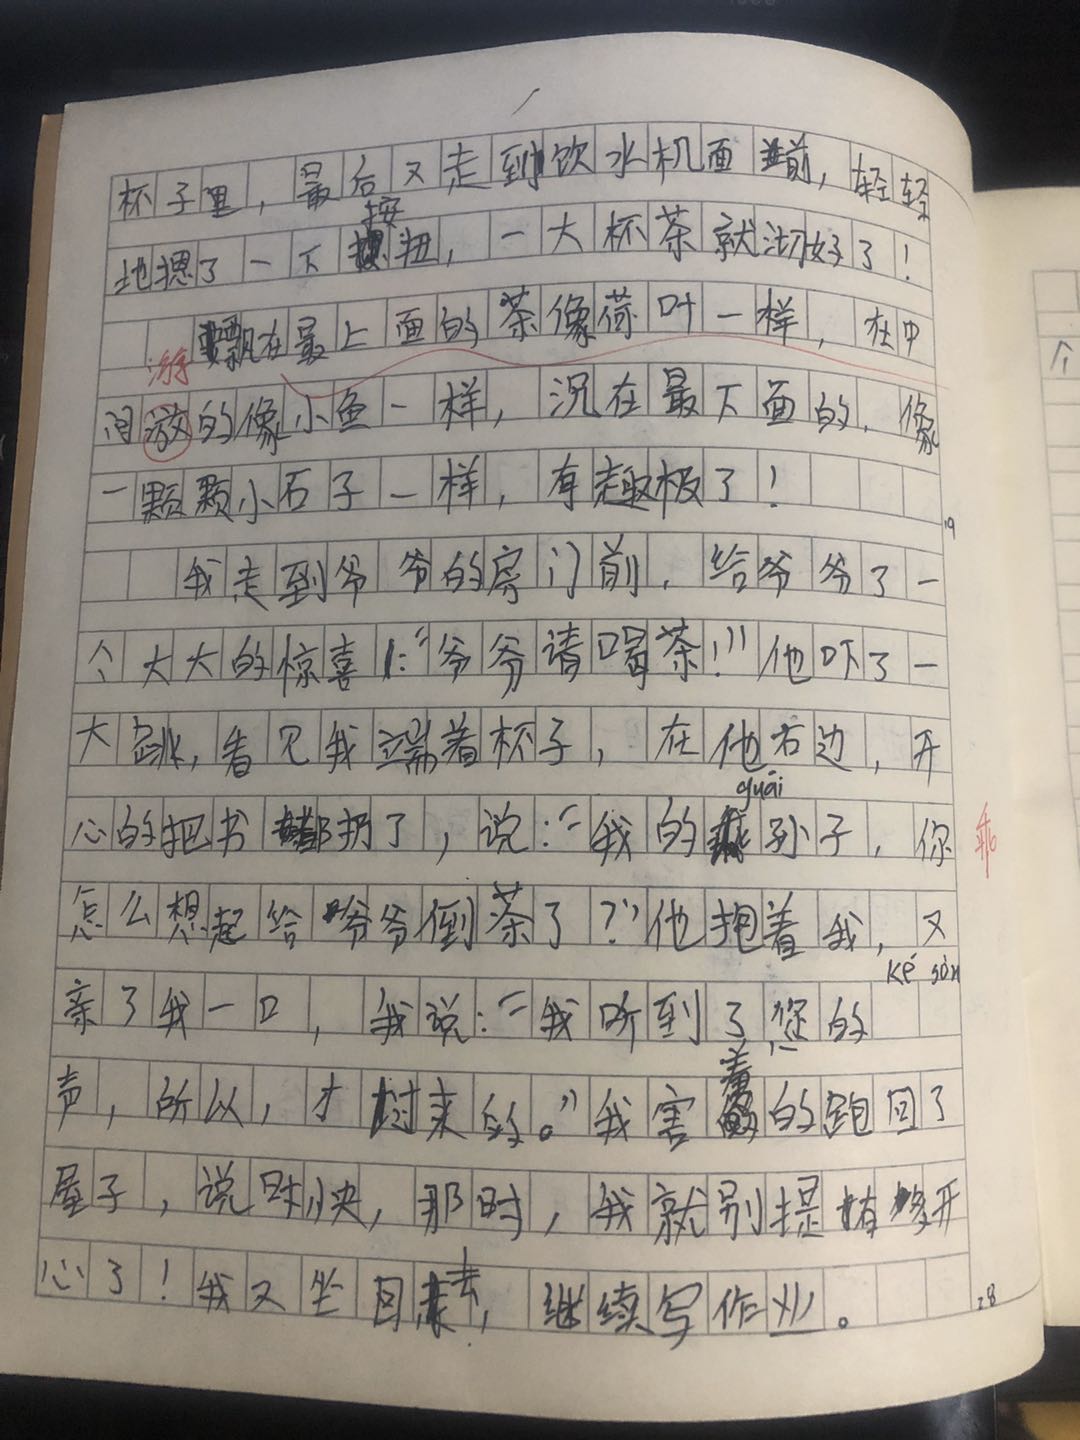 杯子里，最后又走到饮水机面前，轻轻
按
地摁了一下扭，一大杯茶就沏好了！
飘在最上面的茶像荷叶一样，在中
游
间的像小鱼一样，沉在最下面的，像
一颗颗小石子一样，有趣极了！
19
我走到爷爷的房门前，给爷爷了一
个大大的惊喜！：“爷爷请喝茶！”他吓了一
大跳，看见我端着杯子，在他右边，开
guāi
心的把书都扔了，说：“我的孙子，你
乖
怎么想起给爷爷倒茶了？”他抱着我，又
ké sòu
亲了我一口，我说：“我听到了您的
羞
声，所以，才过来的。”我害的跑回了
屋子，说时快，那时，我就别提有多开
心了！我又坐回去，继续写作业。
28
个